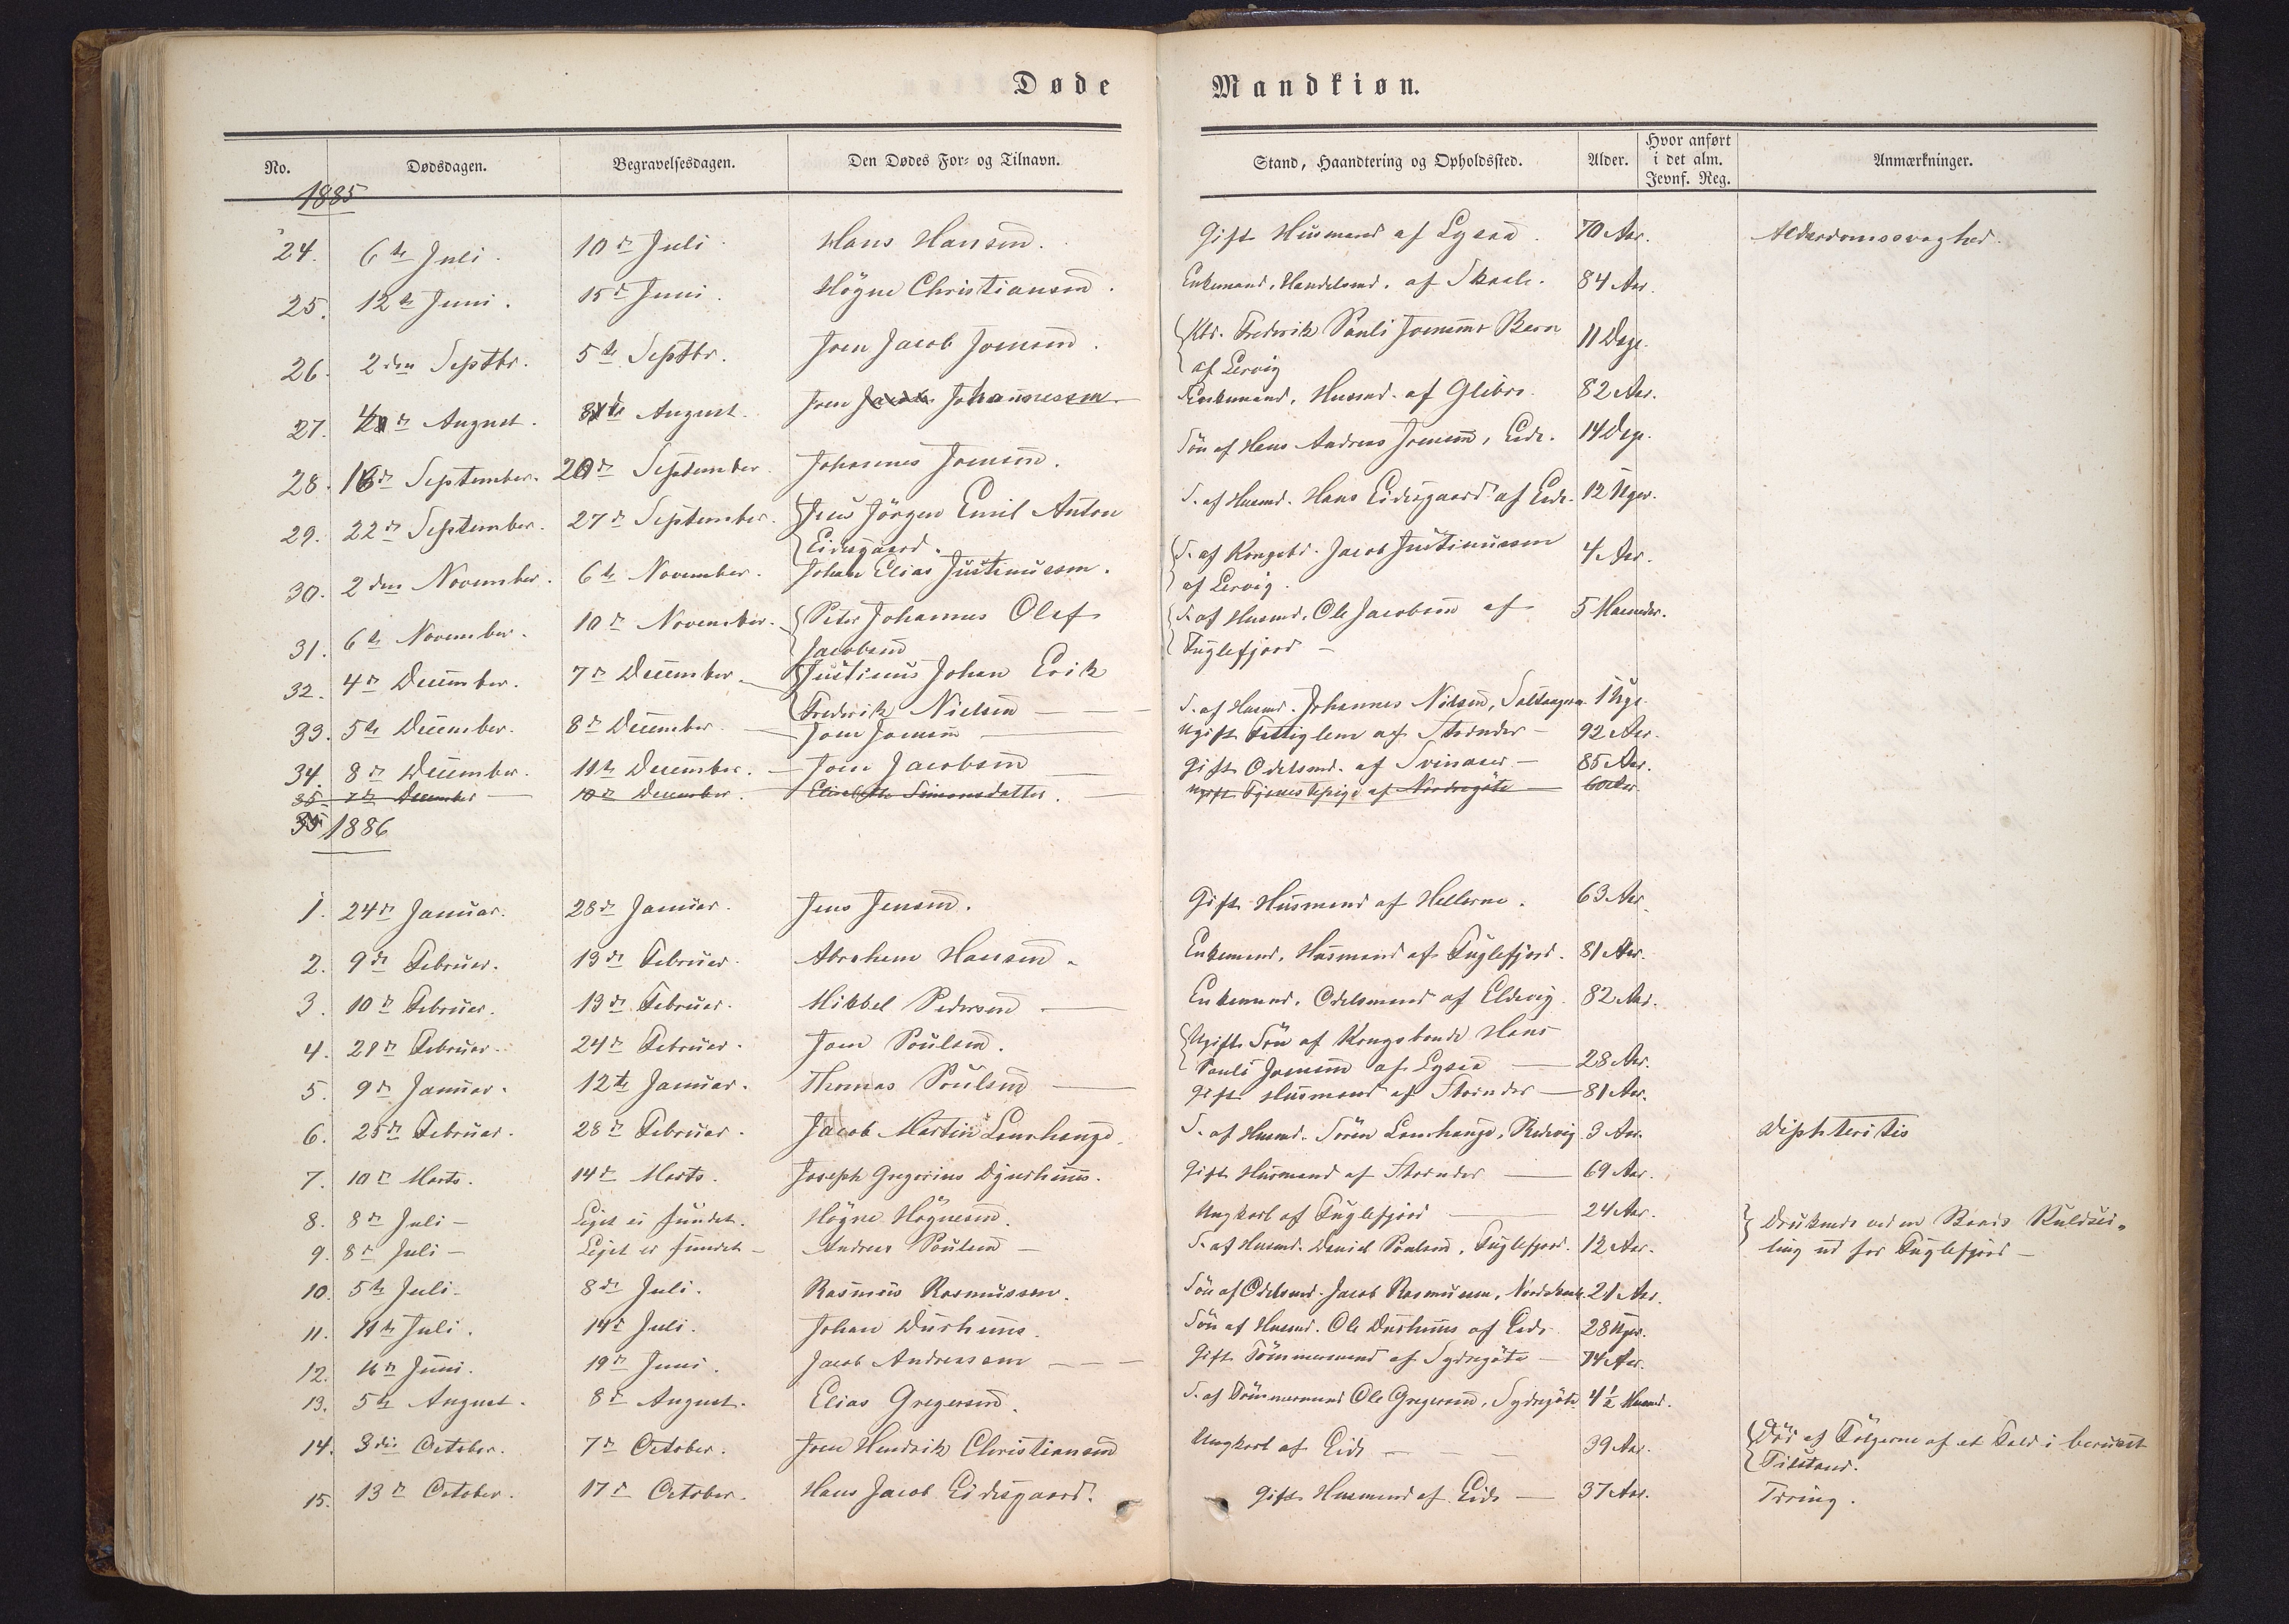 Døde Mandkiøn.
No. Dødsdagen. Begravelsesdagen. Den Dødes For- og Tilnavn. Stand, Haandtering og Opholdssted. Alder. Hvor anført i det alm. Jevnf. Reg. Anmærkninger.
1885
24. 6te Juli. 10de Juli. Hans Hansen. Gift Husmand af Lysaa. 70 Aar. Alderdomssvaghed.
25. 12te Juni. 15de Juni. Högne Christiansen. Enkemand, Handelsmd. af Skaale. 84 Aar.
26. 2den Septbr. 5te Septbr. Joen Jacob Joensen. Kbd. Frederik Pauli Joensens Barn
af Lervig 11 Dage.
27. August. August. Joen Jacob Johannessen Enkemand, Husmd. af Glibre. 82 Aar.
28. September. September. Johannes Joensen. Sön af Hans Andreas Joensen, Eide. 14 Dage.
29. 22de September. 27de September. Jens Jörgen Emil Anton
Eidesgaard. S. af Husmd. Hans Eidesgaard af Eide. 12 Uger.
30. 2den November. 6te November. Johan Elias Justinussen. S. af Kongsbd. Jacob Justinussen
af Lervig. 4 Aar.
31. 6te November. 10de November. Peter Johannes Olaf
Jacobsen S. af Husmd. Ole Jacobsen af
Fuglefjord 5 Maaneder.
32. 4de December. 7de December. Justinus Johan Erik
Frederik Nielsen S. af Husmd. Johannes Nielsen, 1 Uge.
33. 5te December. 8de December. Joen Joensen Ugift Fattiglem af Storudes 92 Aar.
34. 8de December. 11te December. Joen Jacobsen Gift Odelsmd. af Svinaaer 85 Aar.
35. 7de December 10de December. Elisabeth Simonsdatter. Ugift Tjenestepige af Nordregöte 60 Aar.
35 1886
1. 24de Januar. 28de Januar. Jens Jensen. Gift Husmand af Hellerne. 63 Aar.
2. 9de Februar. 13de Februar. Abraham Hansen. Enkemand, Husmand af Fuglefjord. 81 Aar.
3. 10de Februar. 13de Februar. Mikkel Pedersen Enkemand, Odelsmand af Eldevig. 82 Aar.
4. 21de Februar. 24de Februar. Joen Poulsen. Ugift Sön af Kongsbonde Hans
Pauli Joensen af Lysaa 28 Aar.
5. 9de Januar. 12te Januar. Thomas Poulsen Gift Husmand af Storudes 81 Aar.
6. 25de Februar. 28de Februar. Jacob Martin Lamhauge. S. af Husmd. Sören Lamhauge, Ridevig 3 Aar. Diphteritis
7. 10de Marts. 14de Marts. Joseph Gregorius Djurhuus. Gift Husmand af Storudes 69 Aar.
8. 8de Juli Liget ei fundet. Högne Högnesen. Ungkarl af Fuglefjord 24 Aar. Druknede ved en Baads Kuldsei-
9. 8de Juli Liget ei fundet Andreas Poulsen S. af Husmd. Daniel Poulsen, Fuglefjord. 12 Aar. ling ud for Fuglefjord
10. 5te Juli 8de Juli. Rasmus Rasmussen. Sön af Odelsmd. Jacob Rasmussen, 21 Aar.
11. 11te Juli. 14de Juli. Johan Durhuus. Sön af Husmd. Ole Durhuus af Eide 28 Uger.
12. 16de Juni. 19de Juni. Jacob Andreassen Gift Tömmermand af Sydregöte 74 Aar.
13. 5te August. 8de August. Elias Gregersen. S. af Tömmermand Ole Gregersen, Sydregöte 4½ Maaned.
14. 3die October. 7de October. Joen Hendrik Christiansen Ungkarl af Eide 39 Aar. Död af Fölgerne af et Fald i beruset
Tilstand.
15. 13de October. 17de October. Hans Jacob Eidesgaard. Gift Husmand af Eide 37 Aar. Tæring.